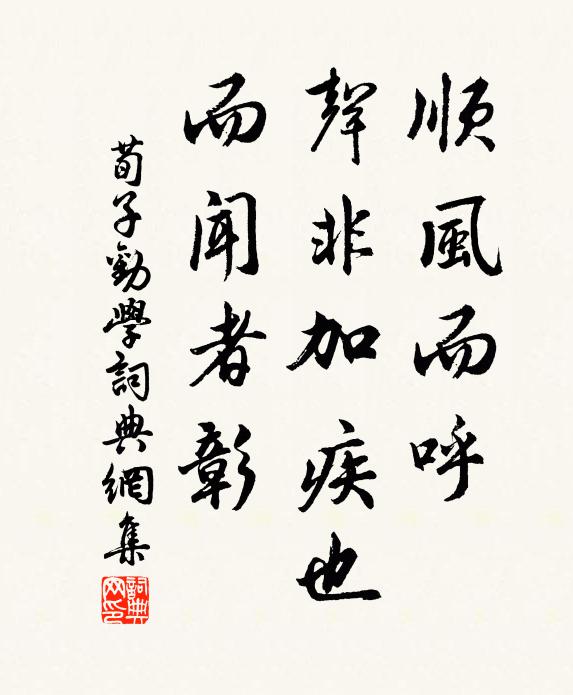 順風而呼
聲非加疾也
而聞者彰
荀子勸學詞典網集
詞典網印